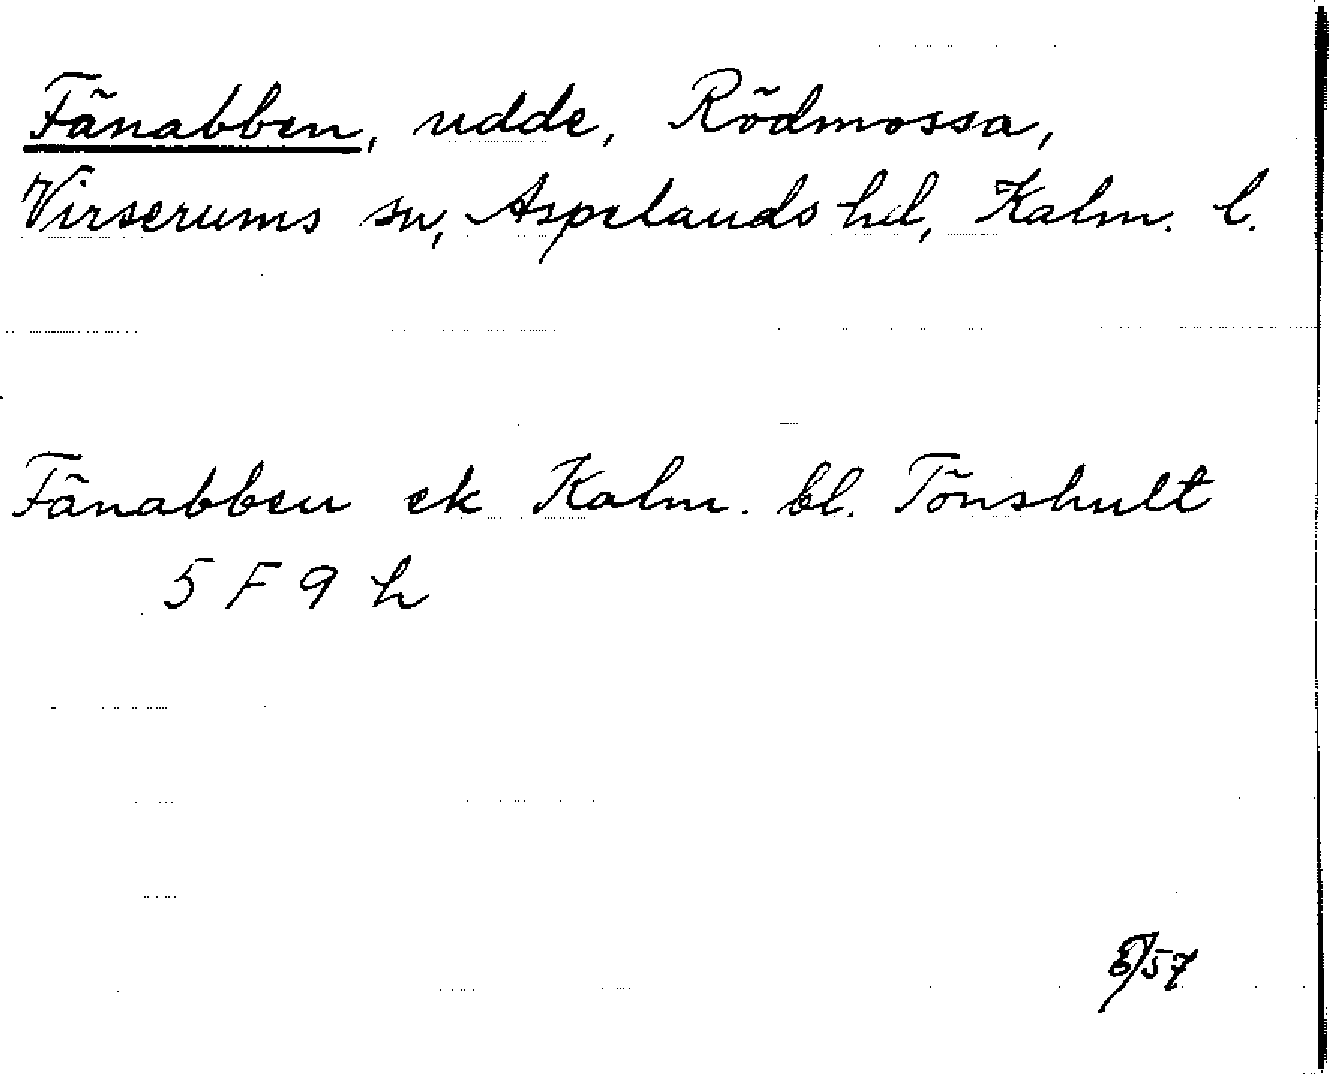 Fänabben, udde, Rödmossa,
Virserums sn, Aspelands hd, Kalm. l.
Fänabben ek Kalm. bl. Tönshult
5 F 9 h
/57